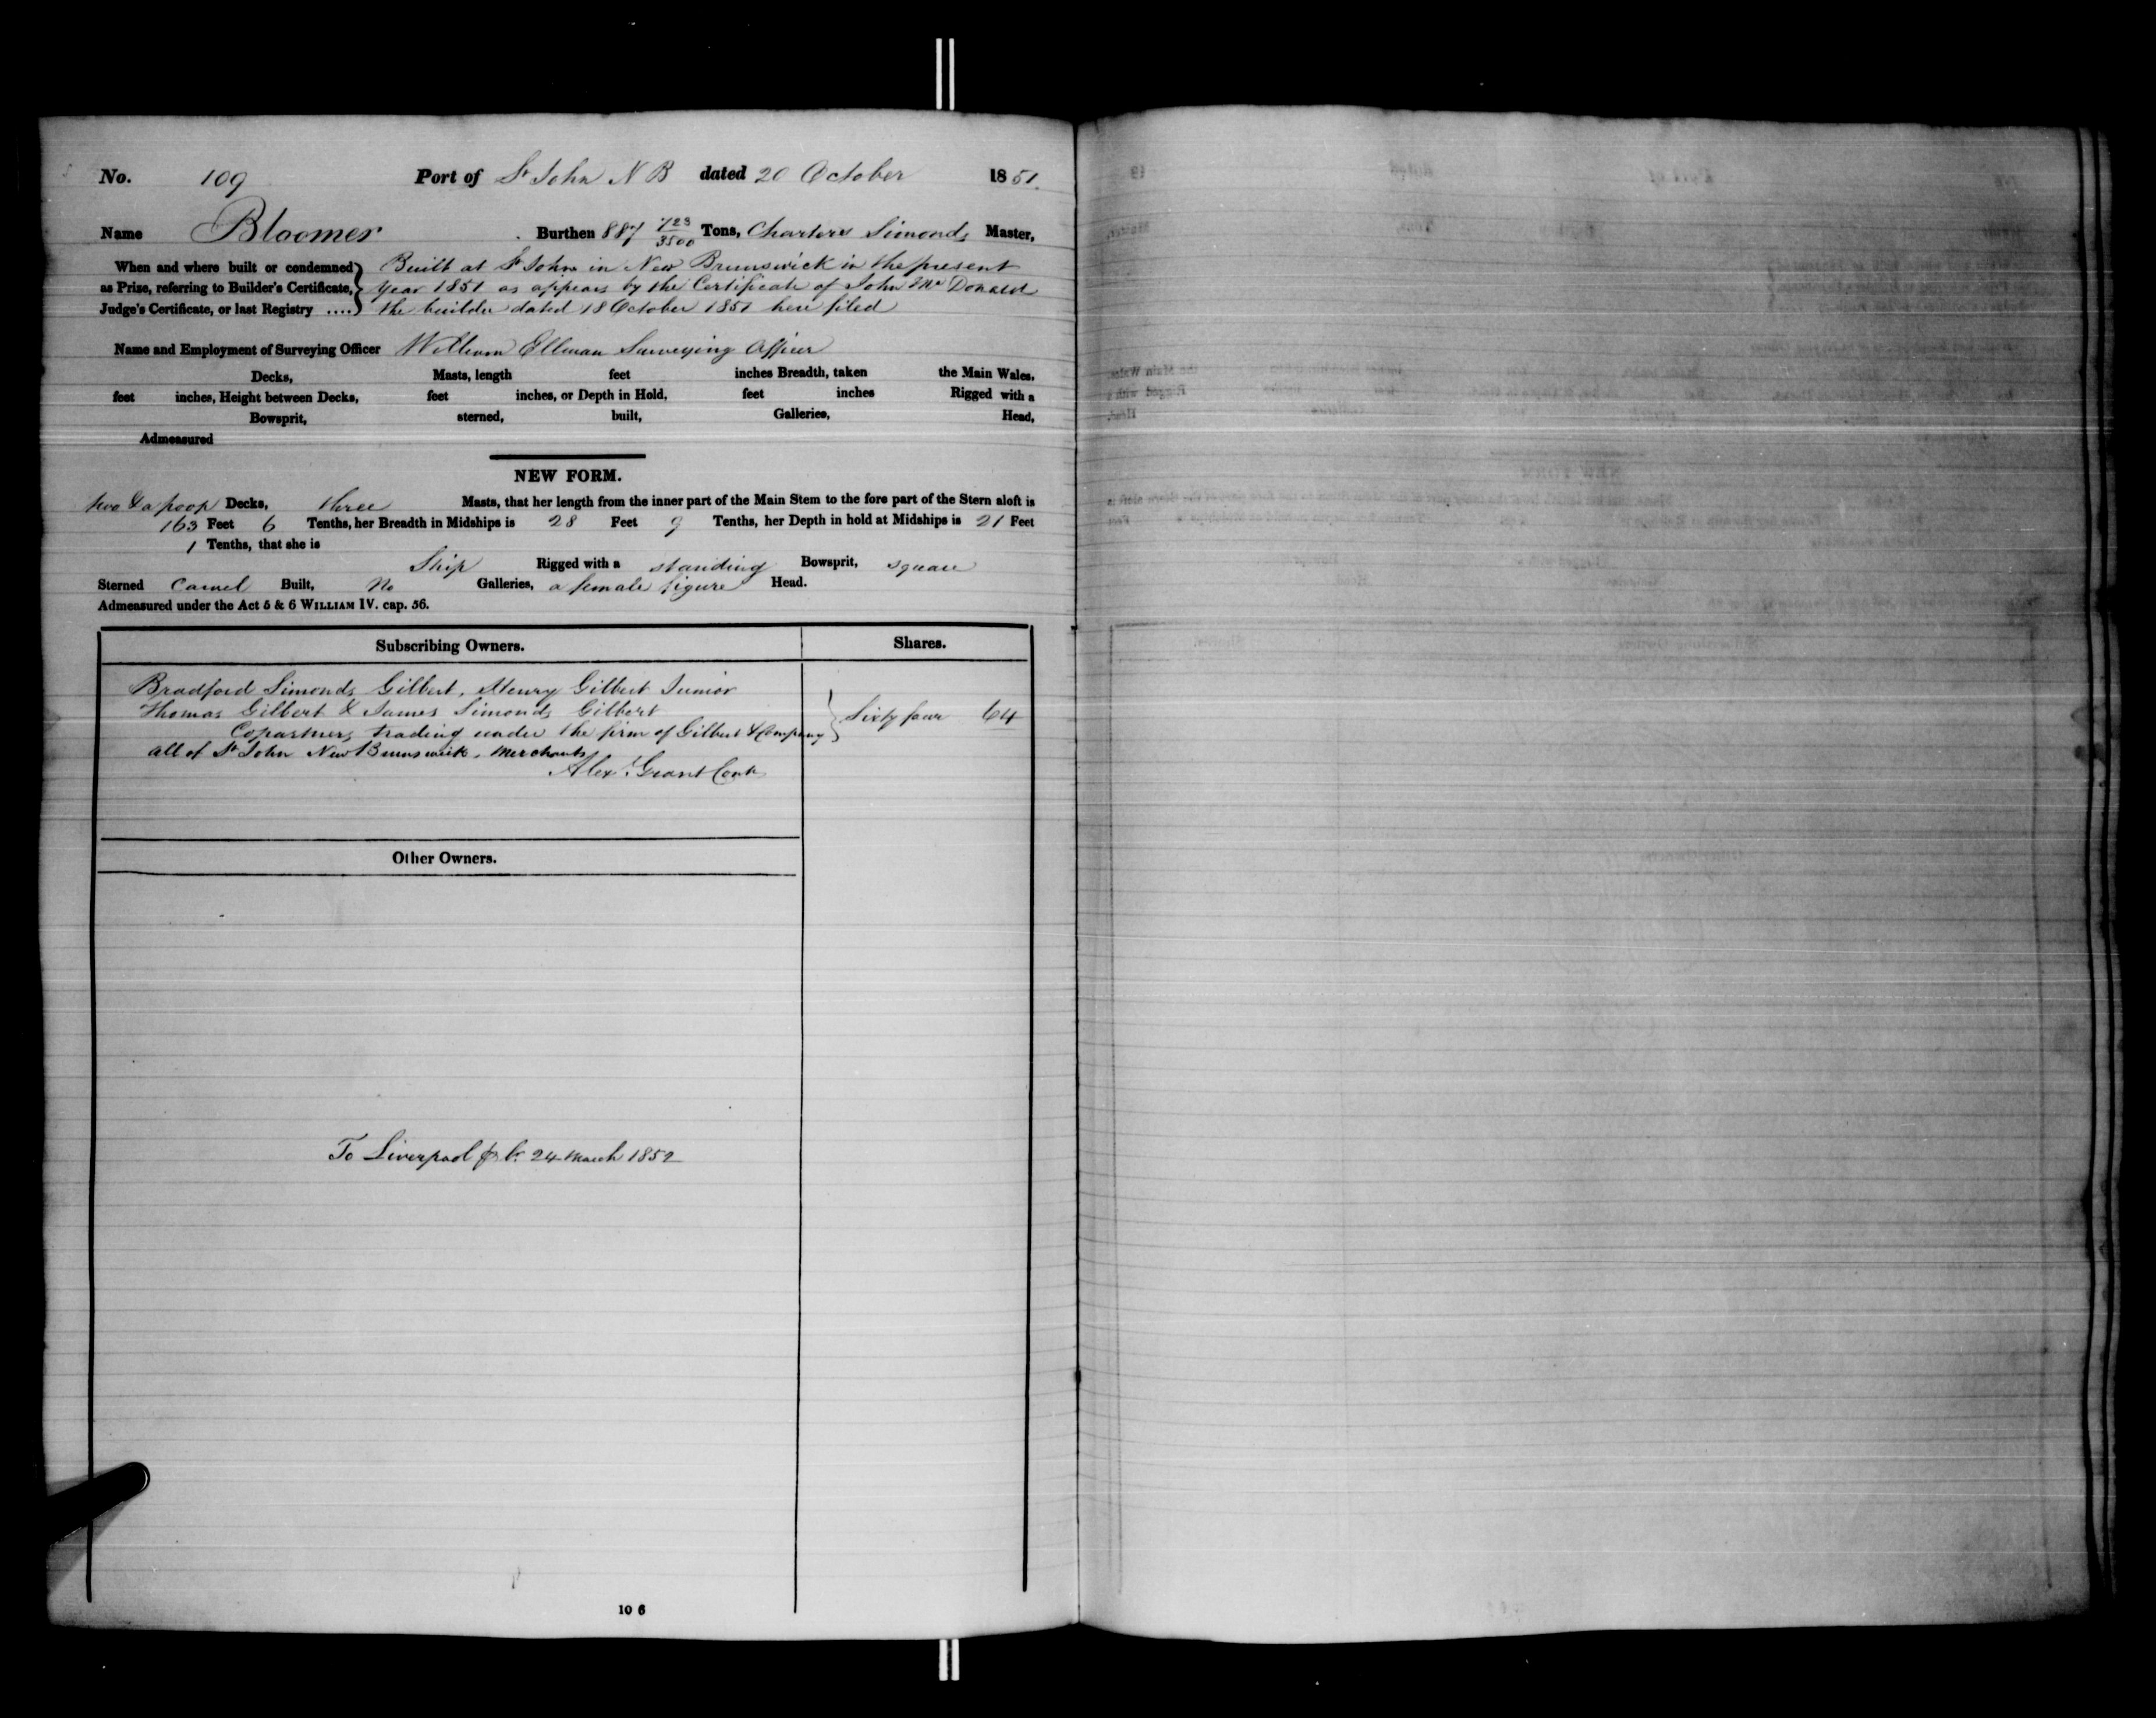 No. 109 Port of St John N B dated 20 October 1851.
Name Bloomer Burthen 887 723/3500 Tons, Charters Simonds Master,
When and where built or condemned Built at St John in New Brunswick in the present
as Prize, referring to Builder's Certificate, year 1851 as appears by the Certificate of John Mc Donald
Judge's Certificate, or last Registry .... the builder dated 18 October 1851 here filed
Name and Employment of Surveying Officer William Ellman Surveying Officer
Decks, Masts, length feet inches Breadth, taken the Main Wales,
feet inches, Height between Decks, feet inches, or Depth in Hold, feet inches Rigged with a
Bowsprit, sterned, built, Galleries, Head,
Admeasured
NEW FORM.
two & a poop Decks, three Masts, that her length from the inner part of the Main Stem to the fore part of the Stern aloft is
163 Feet 6 Tenths, her Breadth in Midships is 28 Feet 9 Tenths, her Depth in hold at Midships is 21 Feet
1 Tenths, that she is
Ship Rigged with a standing Bowsprit, square
Sterned Carvel Built, No Galleries, a female figure Head.
Admeasured under the Act 5 & 6 WILLIAM IV. cap. 56.
Subscribing Owners. Shares.
Bradford Simonds Gilbert, Henry Gilbert Junior
Thomas Gilbert & James Simonds Gilbert Sixty four 64
Copartners trading under the firm of Gilbert & Company
all of St John New Brunswick, Merchants
Alexr. Grant Cont
Other Owners.
To Liverpool 24 March 1852
10 6